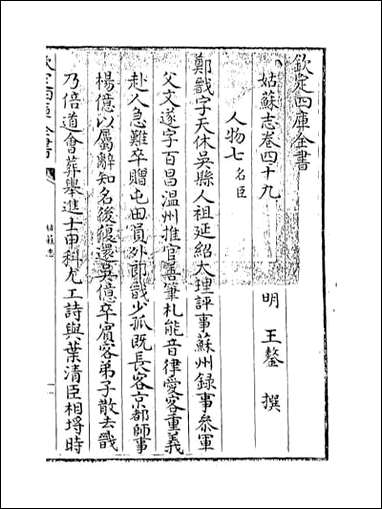 欽定四庫全書
姑蘇志巻四十九
明 王鏊 撰
人物七名臣
鄭戩字天休吳縣人祖延紹大理評事蘇州録事叅軍
父文遂字百昌温州推官善筆札能音律愛客重義
赴人急難卒贈屯田員外郎戩少孤既長客京都師事
楊億以屬辭知名後復還吳億卒賓客弟子散去戩
乃倍道會葬舉進士甲科尤工詩與葉清臣相埒時